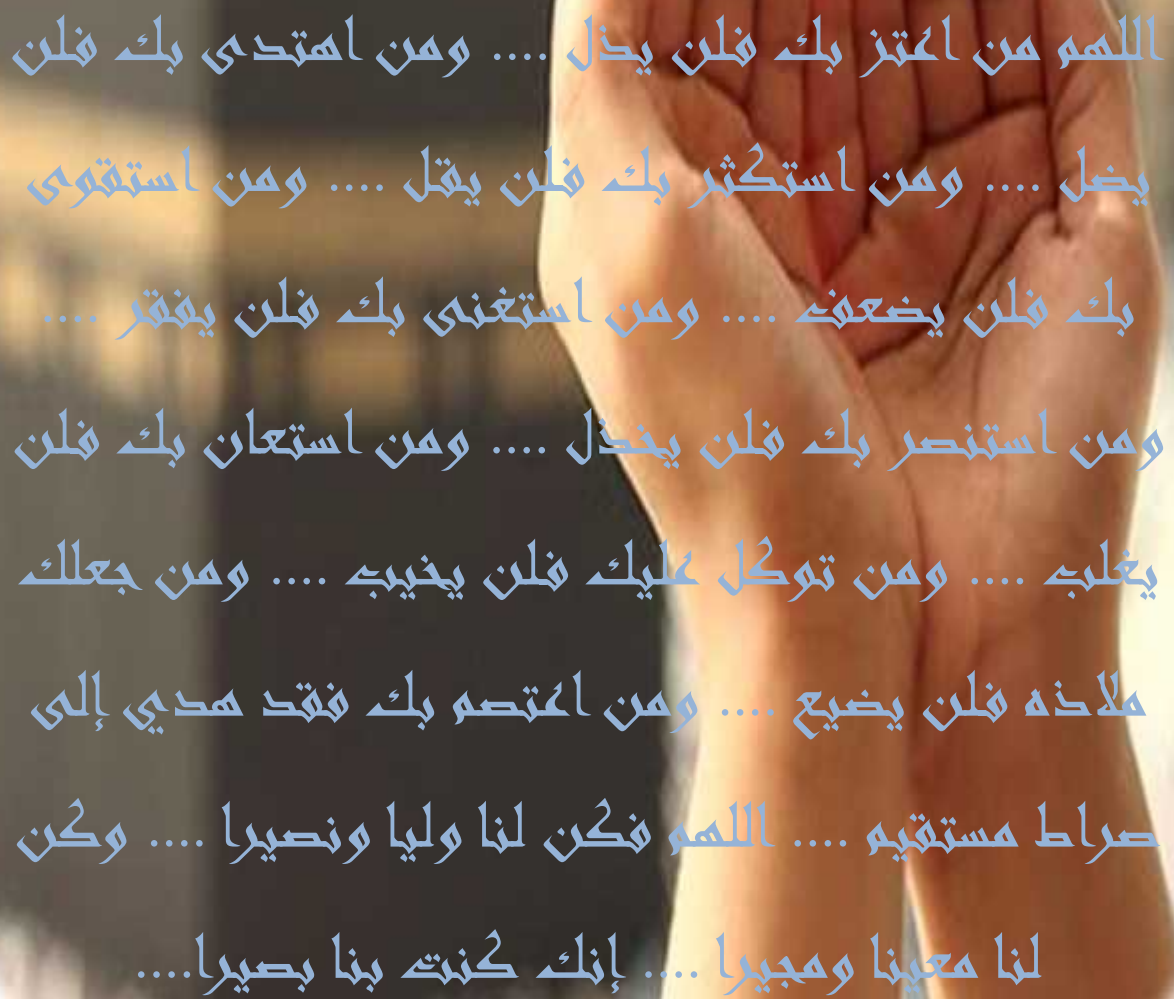 اللهم من اعتز بك فلن يذل .... ومن اهتدى بك فلن
يضل .... ومن استكثر بك فلن يقل .... ومن استقوى
بك فلن يضعف .... ومن استغنى بك فلن يفقر ....
ومن استنصر بك فلن يخذل .... ومن استعان بك فلن
يغلب .... ومن توكل عليك فلن يخيب .... ومن جعلك
ملاذه فلن يضيع .... ومن اعتصم بك فقد هدي إلى
صراط مستقيم .... اللهم فكن لنا وليا ونصيرا .... وكن
لنا معينا ومجيرا .... إنك كنت بنا بصيرا....